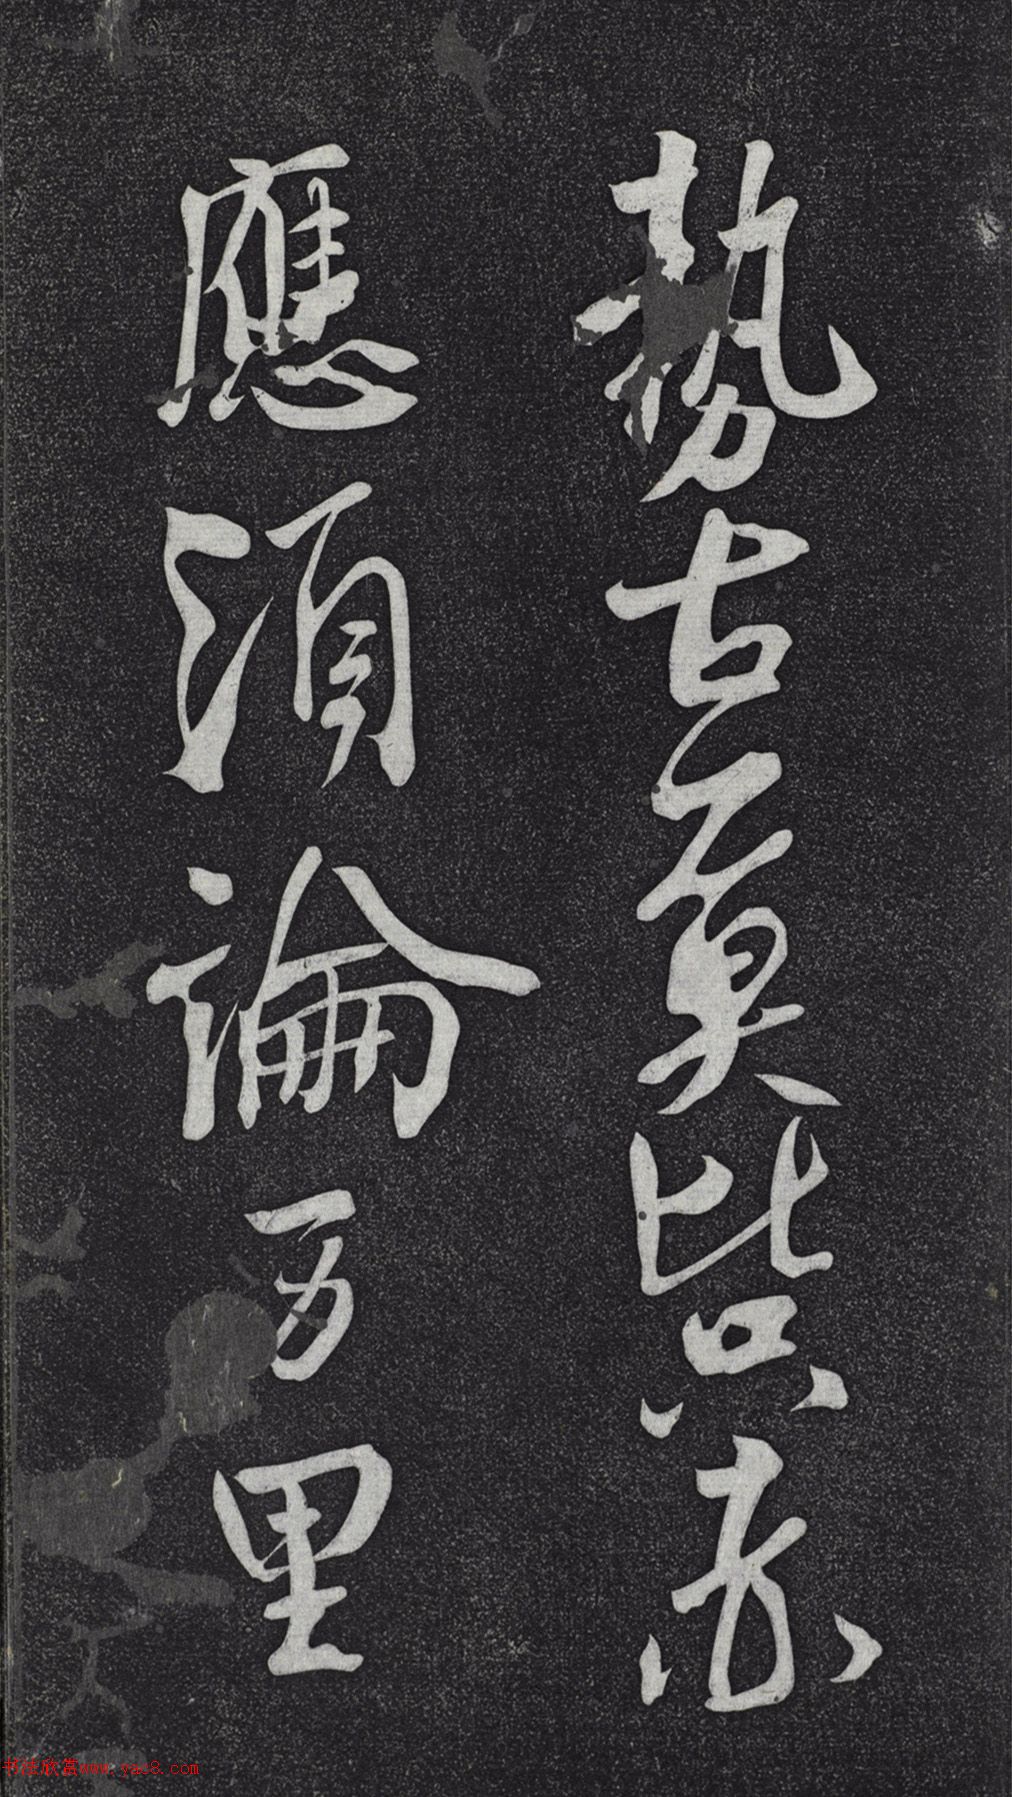 勢古莫比只赤
應須論万里
书法欣赏www.yac8.com